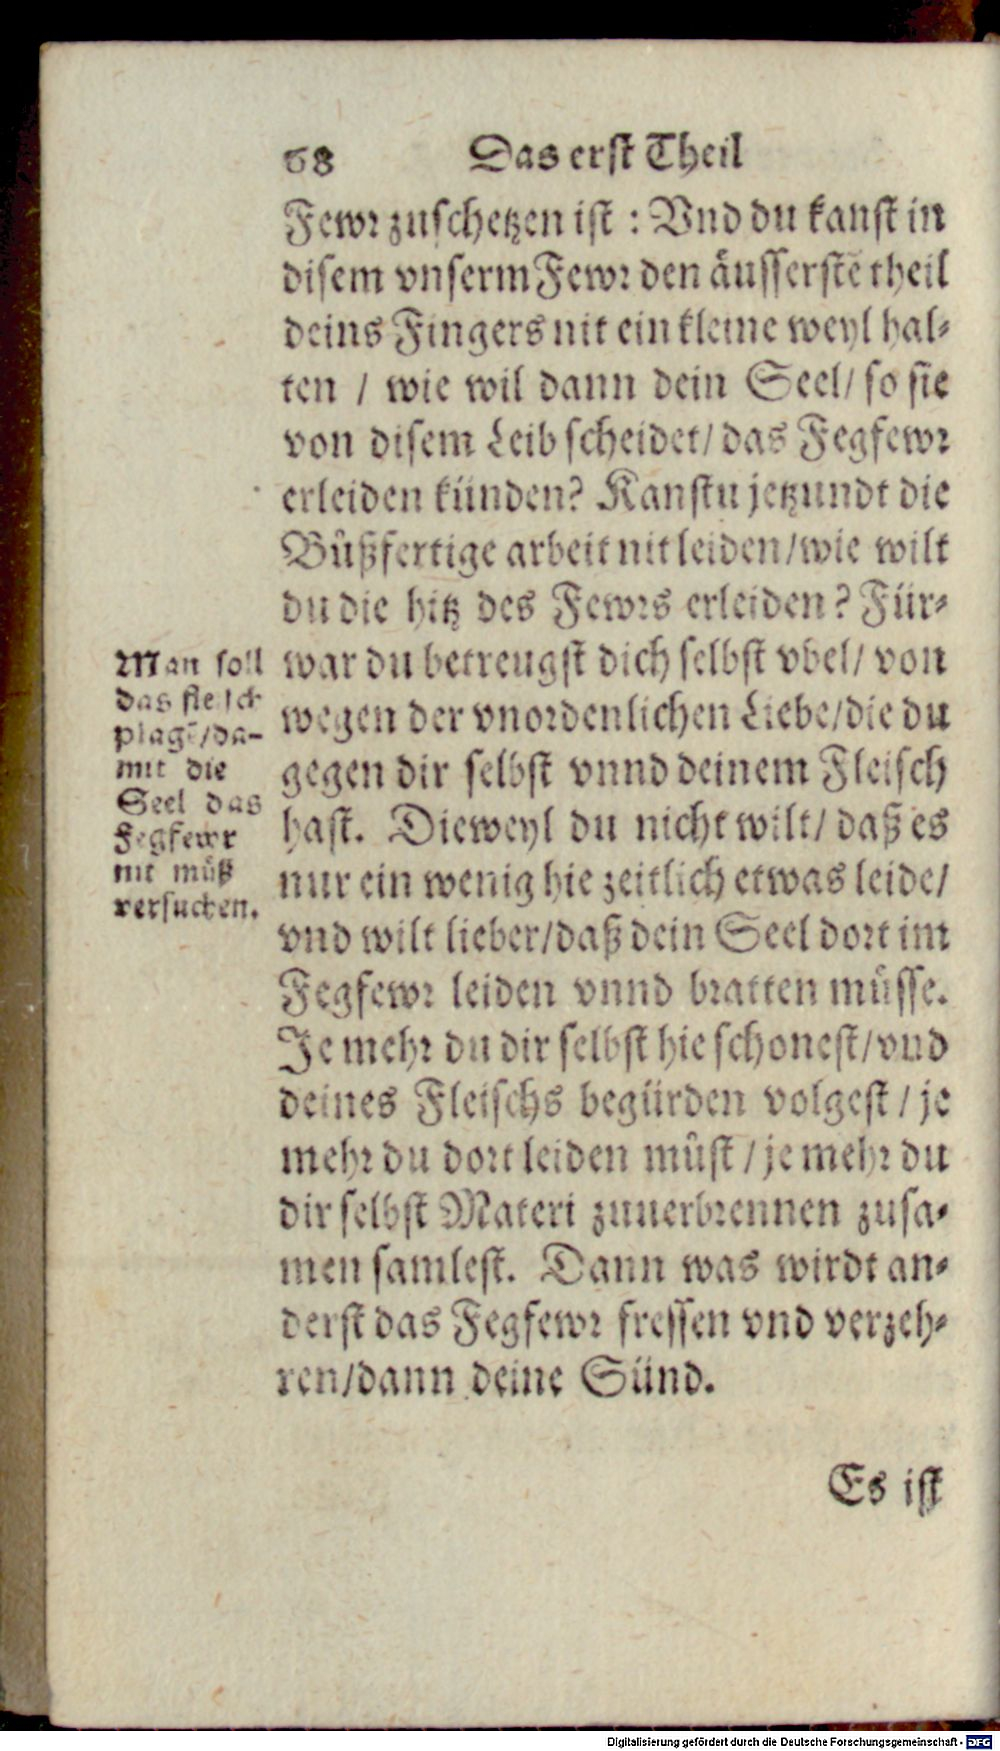 68 Das erst Theil
Fewr zuschetzen ist : Vnd du kanst in
disem vnserm Fewr den äusserstē theil
deins Fingers nit ein kleine weyl hal-
ten / wie wil dann dein Seel / so sie
von disem Leib scheidet / das Fegfewr
erleiden künden? Kanstu jetzundt die
Bůßfertige arbeit nit leiden / wie wilt
du die hitz des Fewrs erleiden? Für-
war du betreugst dich selbst vbel / von
wegen der vnordenlichen Liebe / die du
gegen dir selbst vnnd deinem Fleisch
hast. Dieweyl du nicht wilt / daß es
nur ein wenig hie zeitlich etwas leide /
vnd wilt lieber / daß dein Seel dort im
Fegfewr leiden vnnd bratten müsse.
Je mehr du dir selbst hie schonest / vnd
deines Fleischs begürden volgest / je
mehr du dort leiden můst / je mehr du
dir selbst Materi zuuerbrennen zusa-
men samlest. Dann was wirdt an-
derst das Fegfewr fressen vnd verzeh-
ren / dann deine Sünd.
Man soll
das fleisch
plagē / da-
mit die
Seel das
Fegfewr
nit můß
versuchen.
Es ist
Digitalisierung gefördert durch die Deutsche Forschungsgemeinschaft - DFG